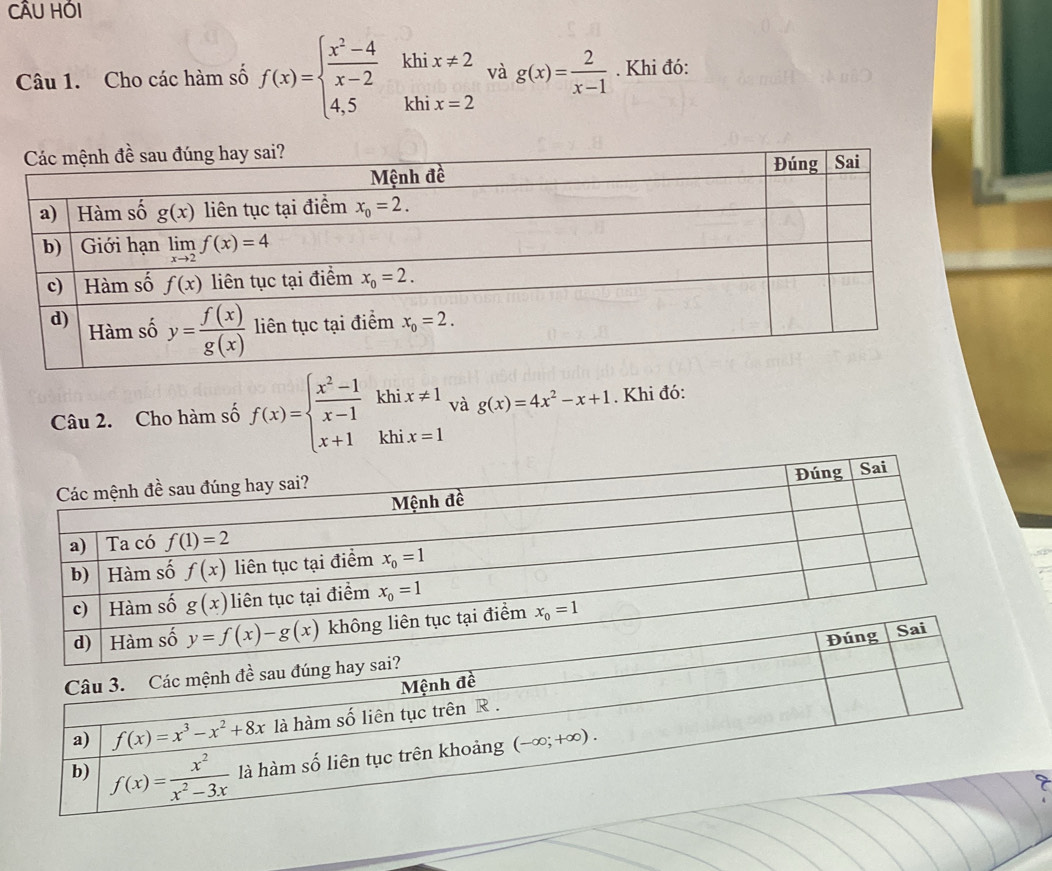 CÂU HỎI
Câu 1. Cho các hàm số f(x) = { (x² − 4)/(x − 2) khi x ≠ 2; 4,5 khi x = 2 và g(x) = 2/(x − 1). Khi đó:
Các mệnh đề sau đúng hay sai?
Mệnh đề Đúng Sai
a) Hàm số g(x) liên tục tại điểm x₀ = 2.
b) Giới hạn lim x→2 f(x) = 4
c) Hàm số f(x) liên tục tại điểm x₀ = 2.
d) Hàm số y = f(x)/g(x) liên tục tại điểm x₀ = 2.
Câu 2. Cho hàm số f(x) = { (x² − 1)/(x − 1) khi x ≠ 1; x + 1 khi x = 1 và g(x) = 4x² − x + 1. Khi đó:
Các mệnh đề sau đúng hay sai?
Mệnh đề Đúng Sai
a) Ta có f(1) = 2
b) Hàm số f(x) liên tục tại điểm x₀ = 1
c) Hàm số g(x) liên tục tại điểm x₀ = 1
d) Hàm số y = f(x) − g(x) không liên tục tại điểm x₀ = 1
Câu 3. Các mệnh đề sau đúng hay sai?
Mệnh đề Đúng Sai
a) f(x) = x³ − x² + 8x là hàm số liên tục trên ℝ.
b) f(x) = x²/(x² − 3x) là hàm số liên tục trên khoảng (−∞; +∞).